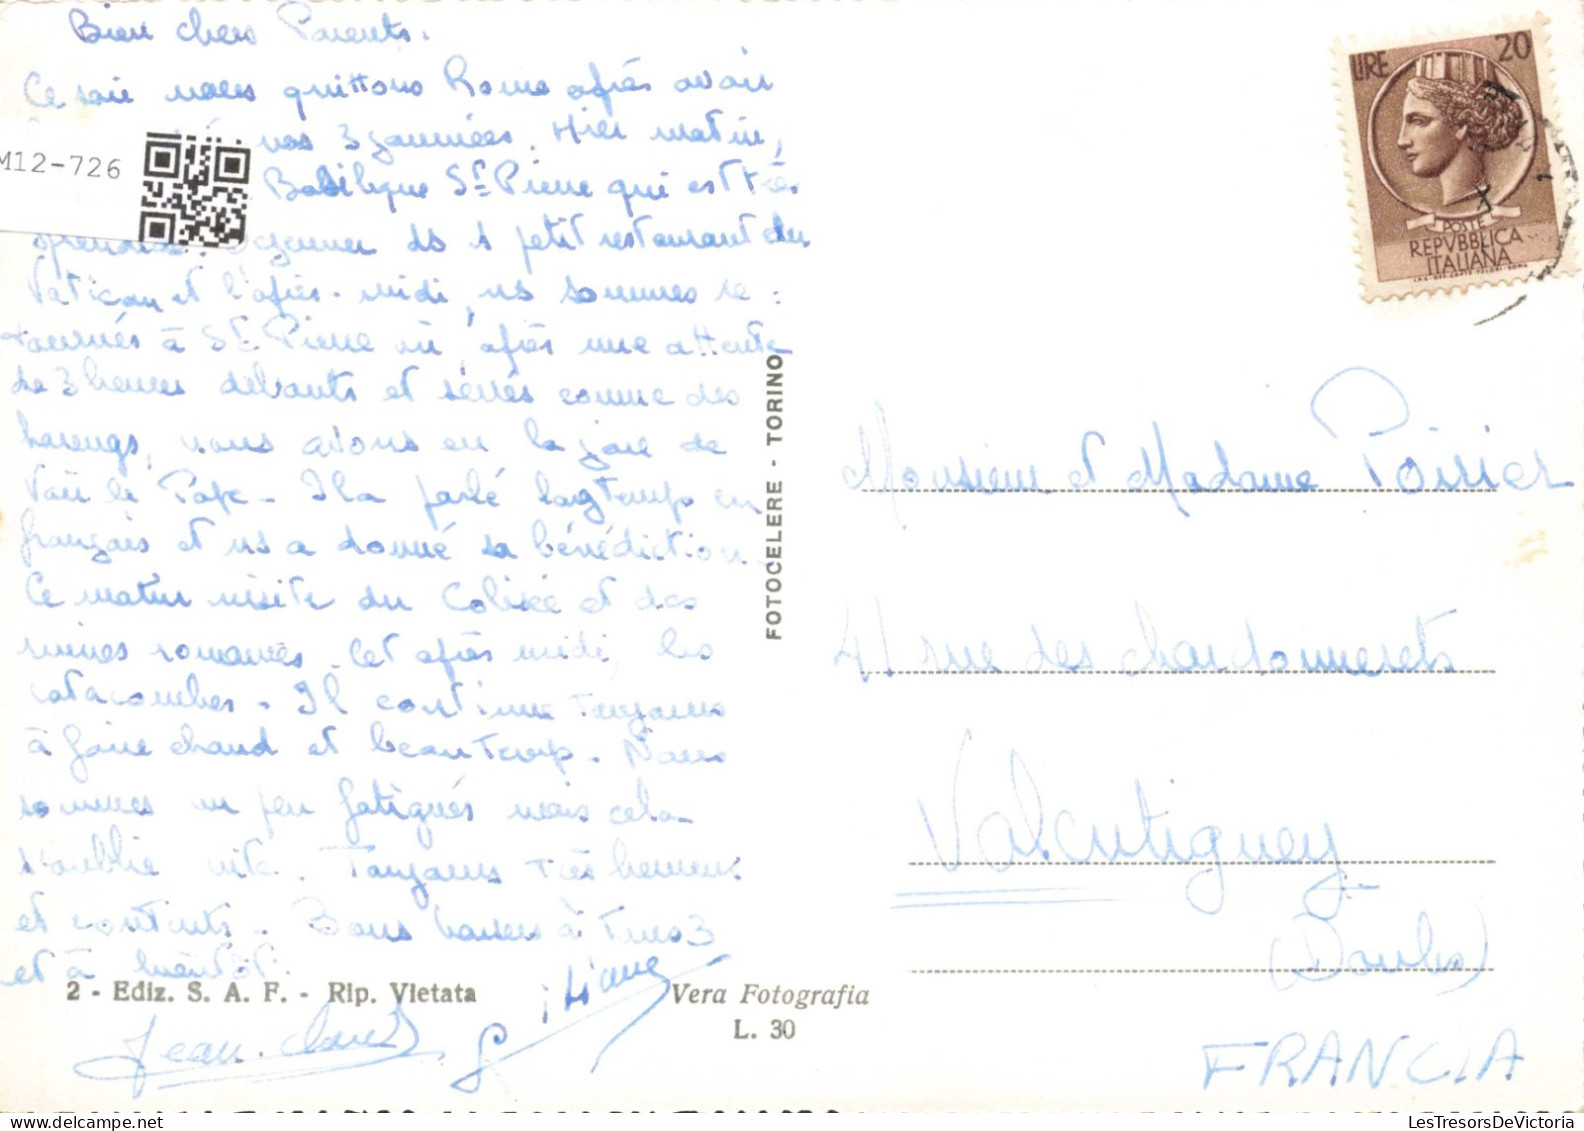 Bien chers Parents.
Ce soir nous quittons Rome après avoir
nos 3 journées. Hier matin,
Basilique St Pierre qui est très
grandiose. Déjeuner ds 1 petit restaurant du
Vatican et l'après-midi, ns sommes re-
tournés à St Pierre où, après une attente
de 3 heures debouts et serrés comme des
harengs, nous avons eu la joie de
voir le Pape - Il a parlé longtemps en
français et ns a donné sa bénédiction.
Ce matin visite du Colisée et des
ruines romaines. Cet après midi, les
catacombes. Il continue toujours
à faire chaud et beau temps. Nous
sommes un peu fatigués mais cela
s'oublie vite. Toujours très heureux
et contents. Bons baisers à tous 3
et à bientôt.
Jean-Claude
Liliane
M12-726
2 - Ediz. S. A. F. - Rip. Vietata
Vera Fotografia
L. 30
FOTOCELERE - TORINO
LIRE 20
POSTE
REPVBBLICA
ITALIANA
Monsieur et Madame Poirier
41 rue des chardonnerets
Valentigney
(Doubs)
FRANCIA
LesTresorsDeVictoria.com